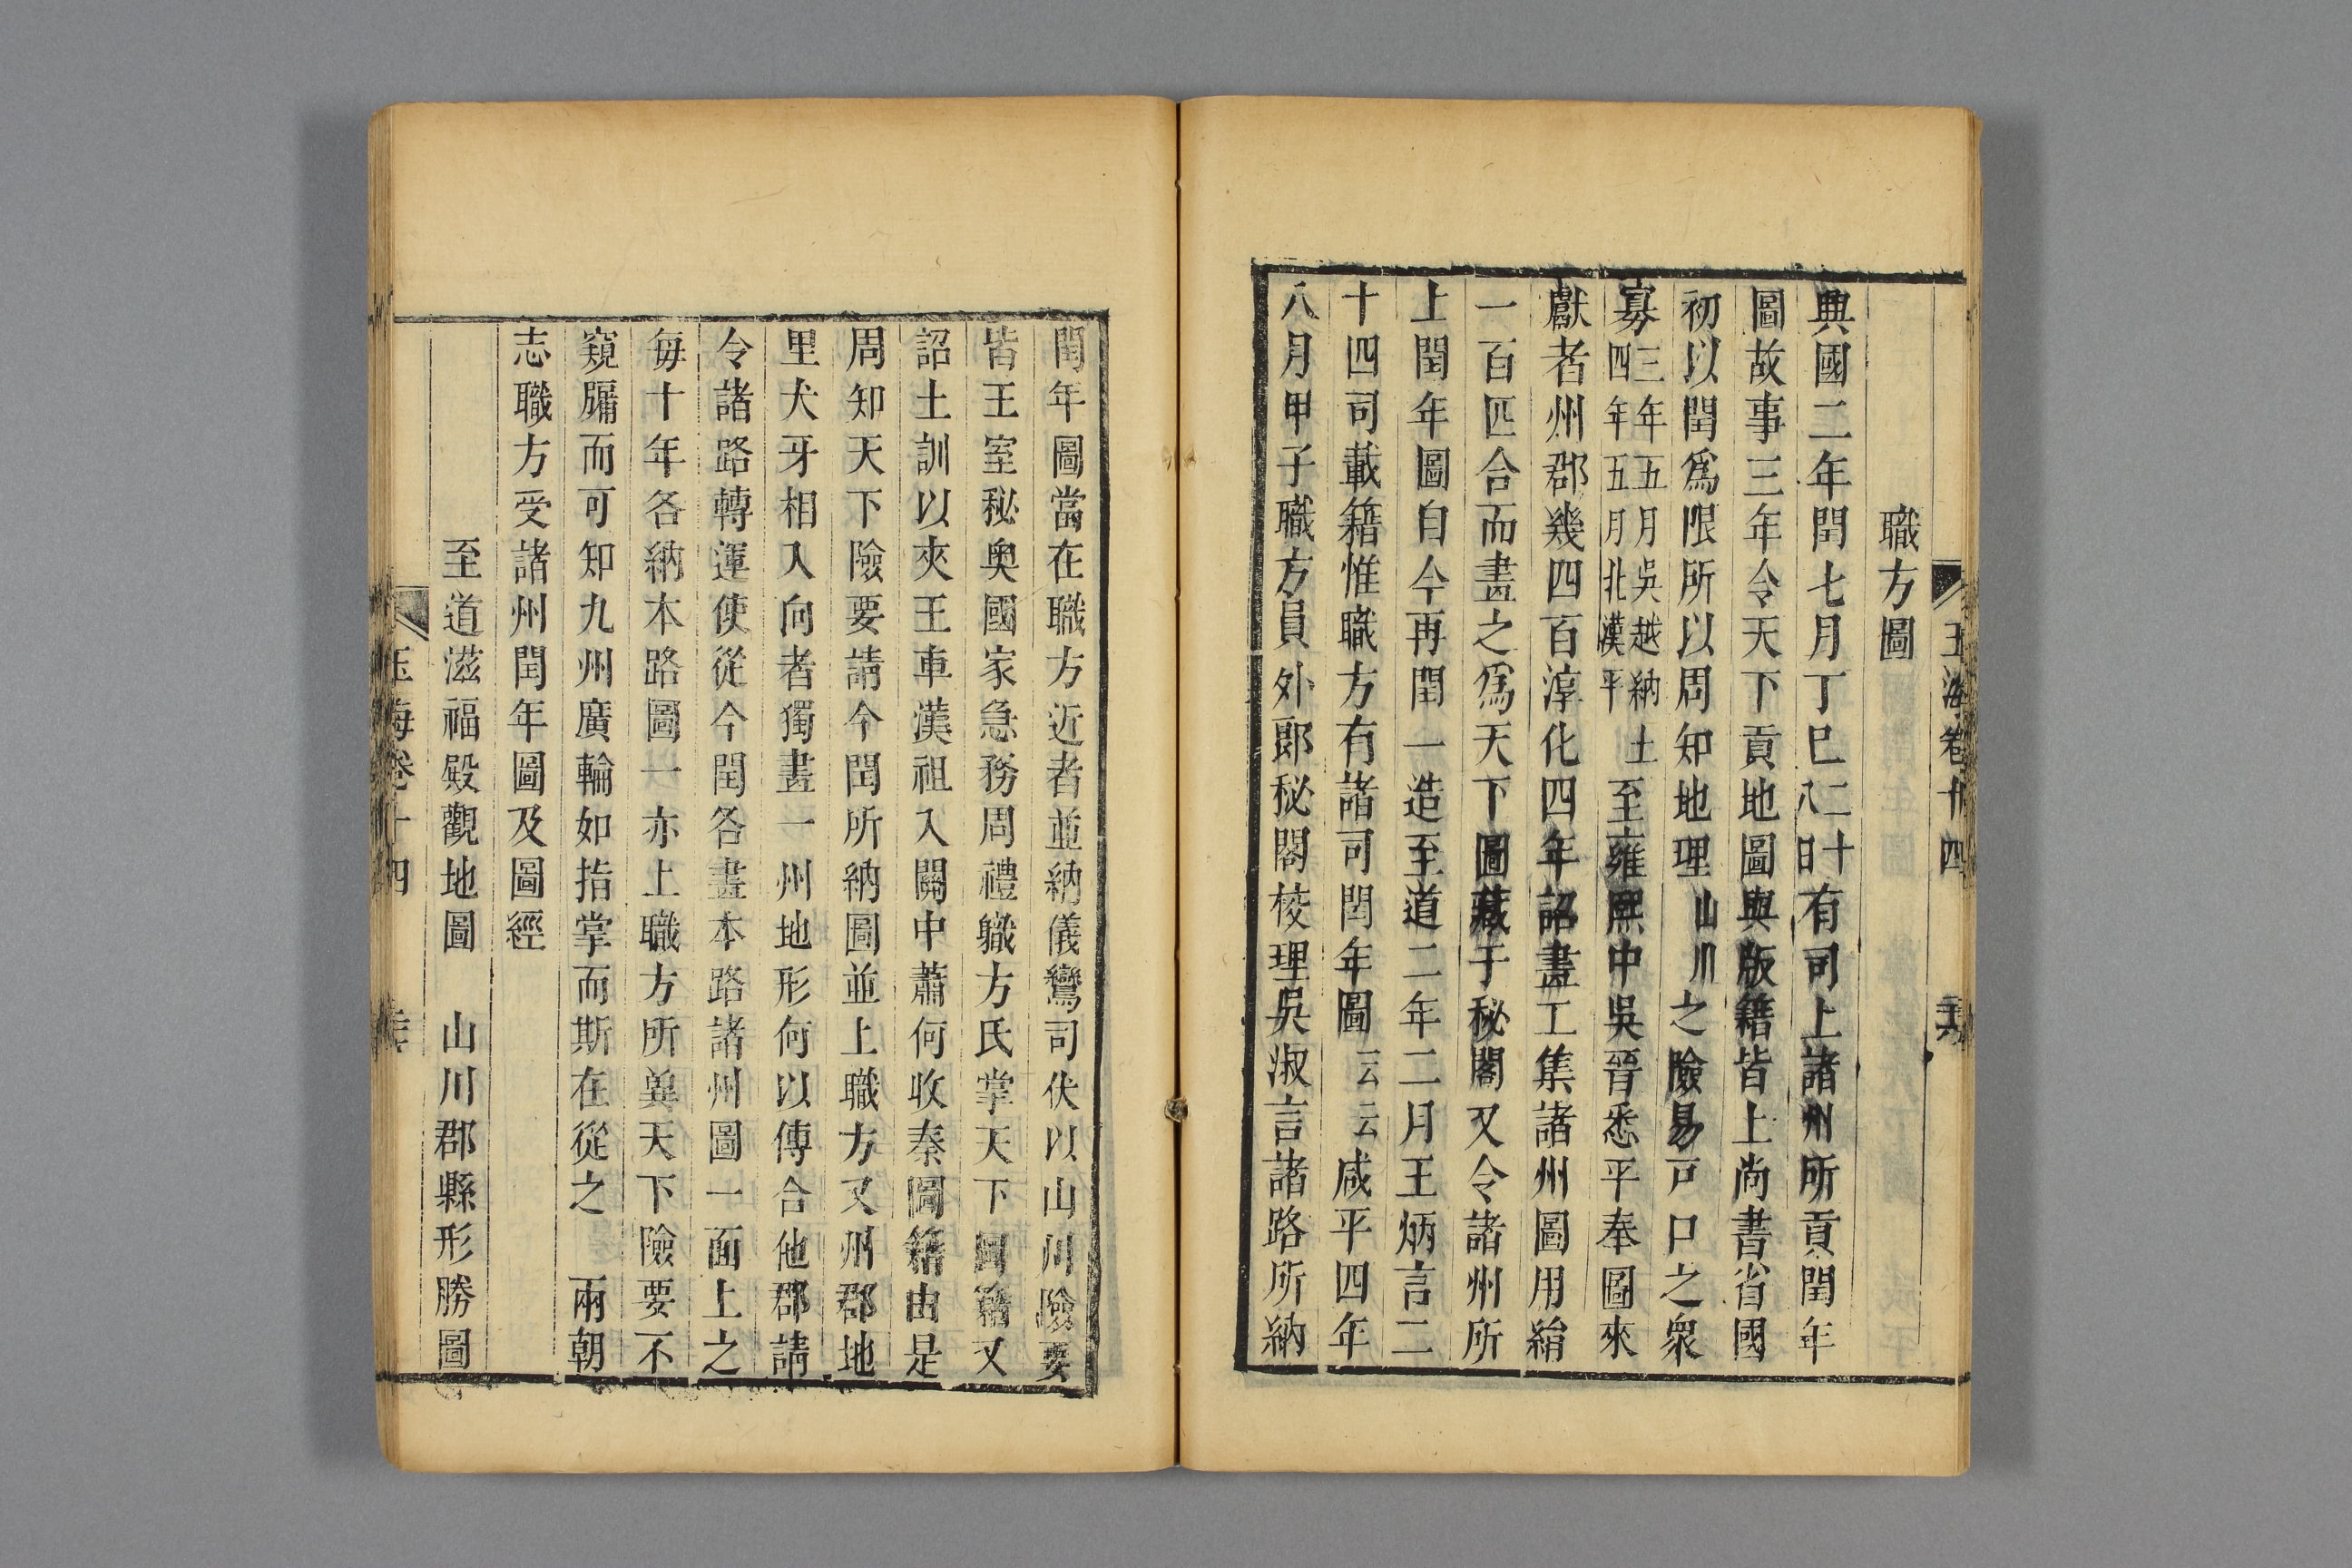 玉海卷十四
職方圖
興國二年閏七月丁巳二十八日有司上諸州所貢閏年
圖故事三年令天下貢地圖與版籍皆上尚書省國
初以閏爲限所以周知地理山川之險易戸口之衆
寡三年五月吳越納土四年五月北漢平至雍熙中吳晉悉平奉圖來
獻者州郡幾四百淳化四年詔畫工集諸州圖用絹
一百匹合而畫之爲天下圖藏于秘閣又令諸州所
上閏年圖自今再閏一造至道二年二月王炳言二
十四司載籍惟職方有諸司閏年圖云云咸平四年
八月甲子職方員外郎秘閣校理吳淑言諸路所納
閏年圖當在職方近者並納儀鸞司伏以山川險要
皆王室秘奧國家急務周禮職方氏掌天下圖籍又
詔土訓以夾王車漢祖入關中蕭何收秦圖籍由是
周知天下險要請今閏所納圖並上職方又州郡地
里犬牙相入向者獨畫一州地形何以傳合他郡請
令諸路轉運使從今閏各畫本路諸州圖一面上之
每十年各納本路圖一亦上職方所冀天下險要不
窺牖而可知九州廣輪如指掌而斯在從之 兩朝
志職方受諸州閏年圖及圖經
至道滋福殿觀地圖 山川郡縣形勝圖
玉海卷十四